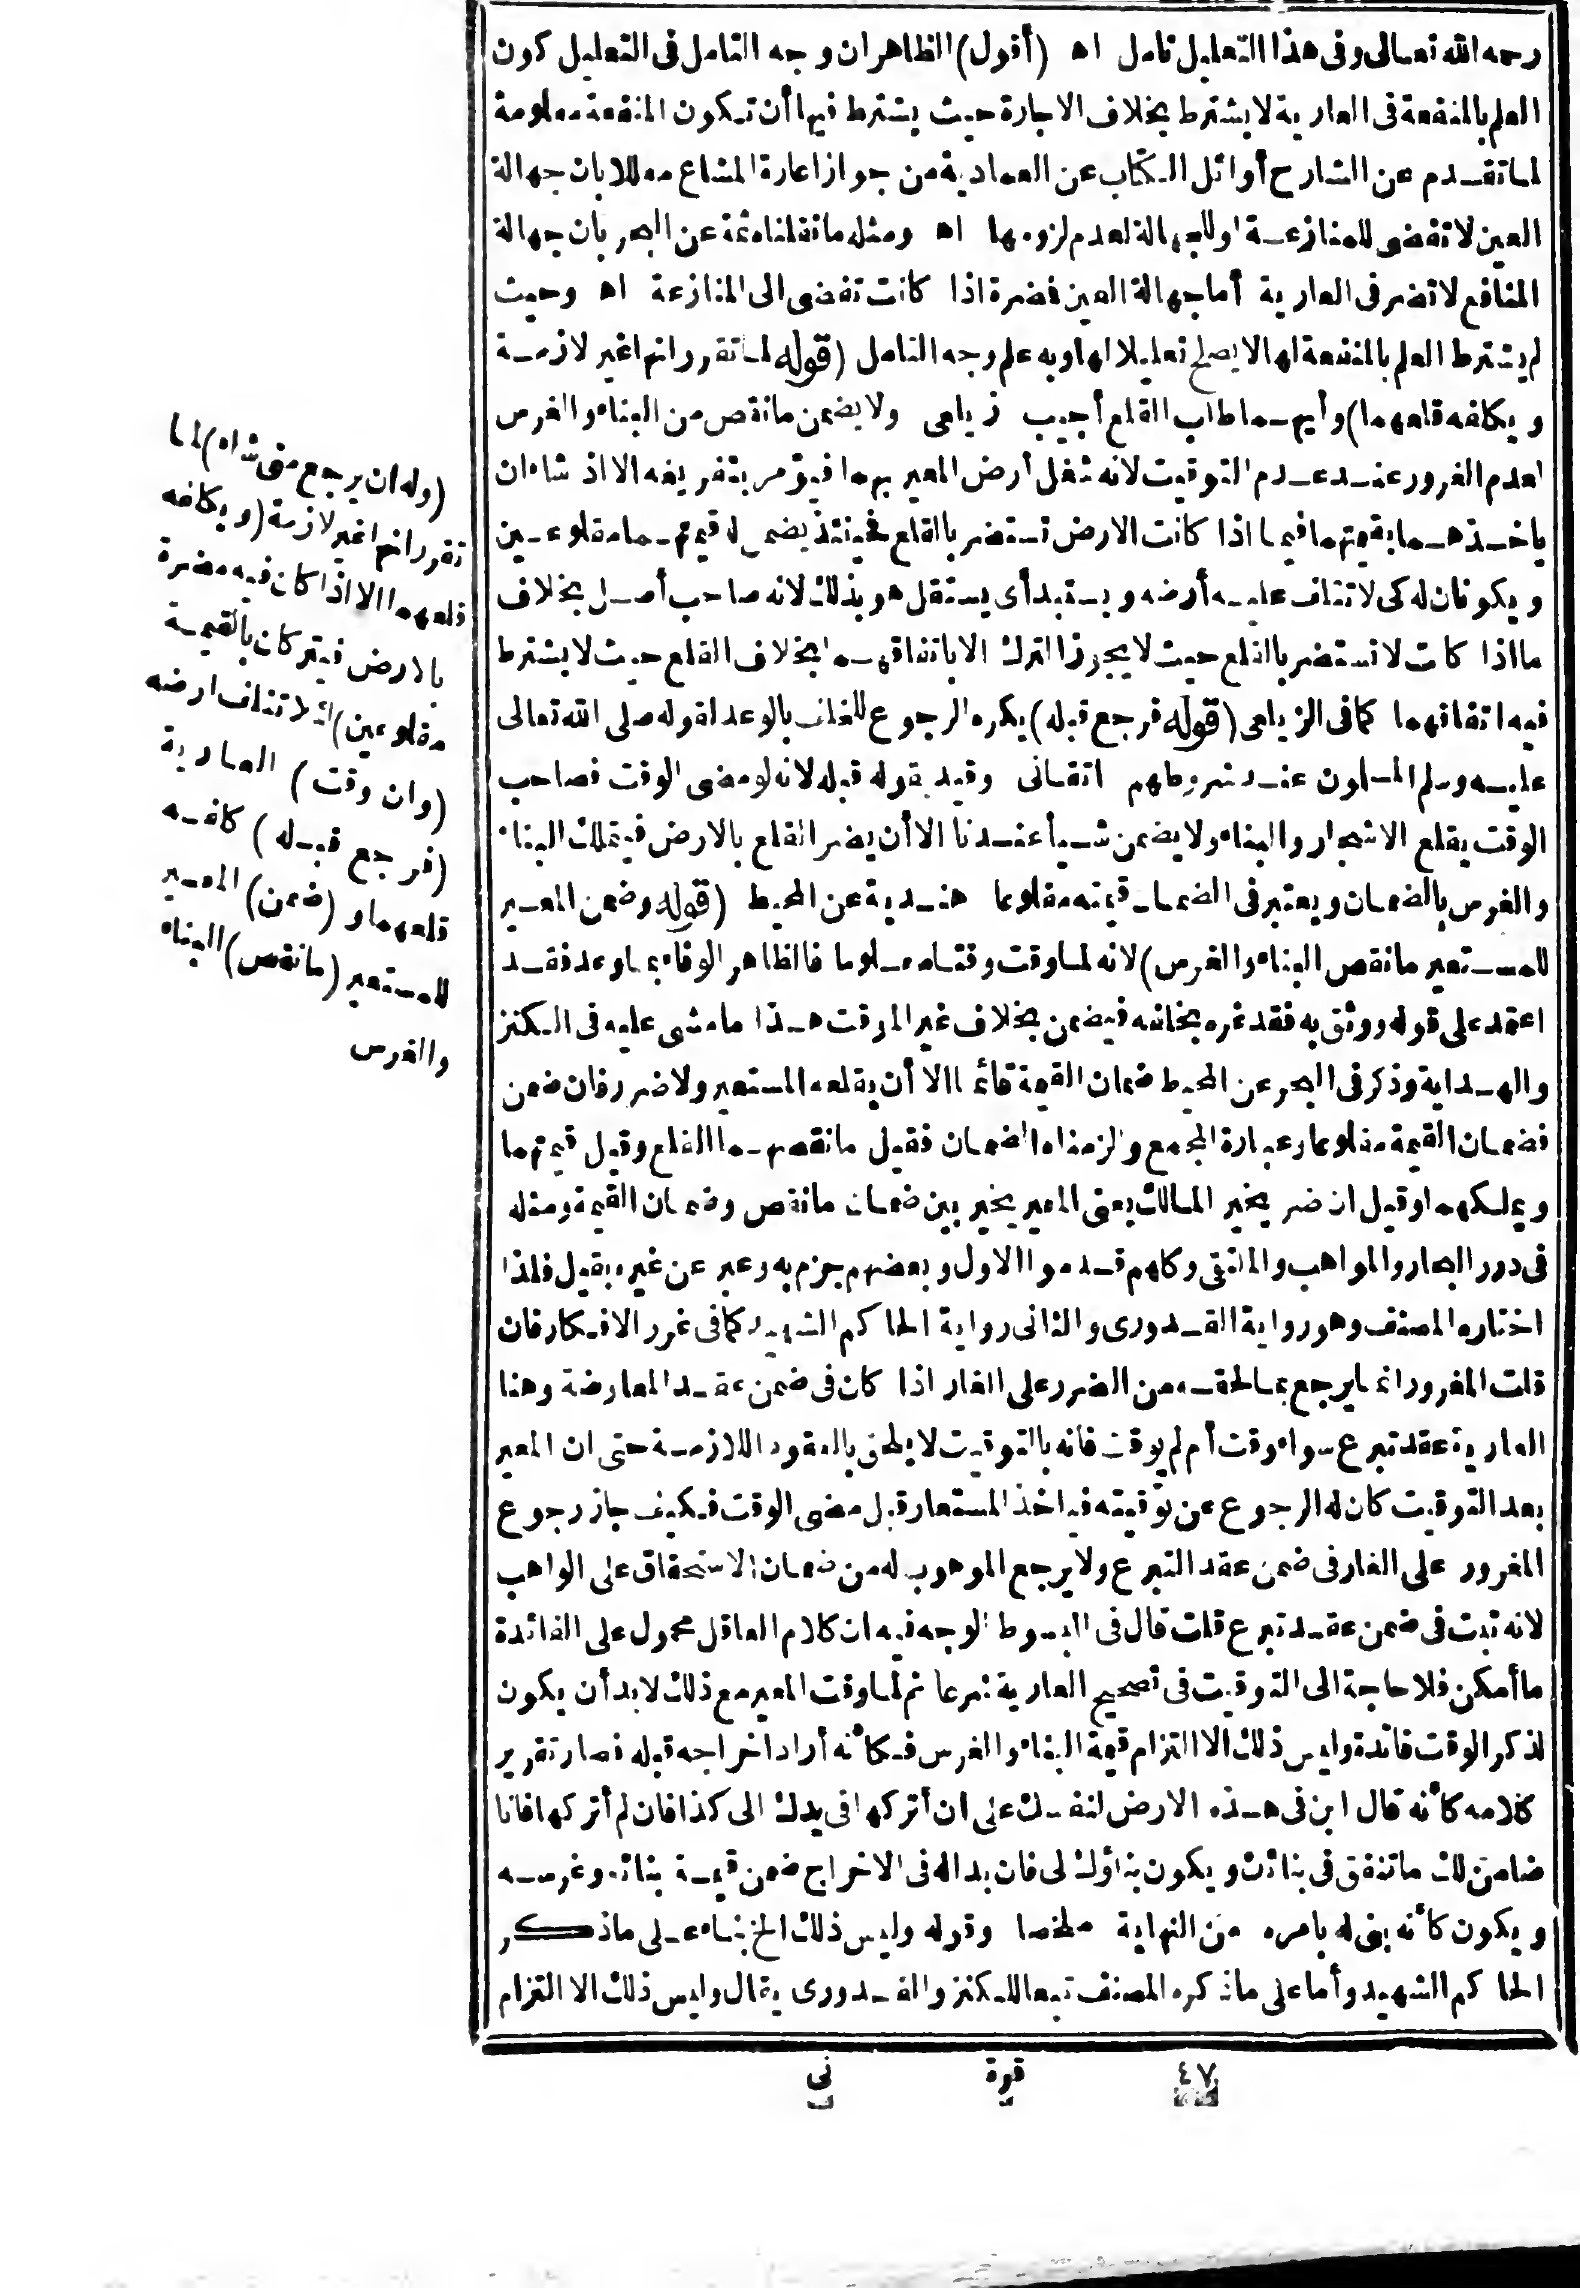 رحمه الله تعالى وفى هذا التعليل تامل اه (أقول) الظاهر ان وجه التامل فى التعليل كون
العلم بالمنفعة فى العارية لا يشترط بخلاف الاجارة حيث يشترط فيها أن تكون المنفعة معلومة
لما تقدم عن الشارح أوائل الكتاب عن العمادية من جواز اعارة المشاع معللا بان جهالة
العين لا تفضى للمنازعة اوللجهالة لعدم لزومها اه ومثله ما نقلناه ثمة عن البحر بان جهالة
المنافع لا تضر فى العارية أما جهالة العين فضرة اذا كانت تفضى الى المنازعة اه وحيث
لم يشترط العلم بالمنفعة لها لا يصلح تعليلا لها وبه علم وجه التامل (قوله لما تقرر انها غير لازمة
ويكلفه قلعهما) وأيهما طلب القلع أجيب زيلعى ولا يضمن ما نقص من البناء والغرس
لعدم الغرور عند عدم التوقيت لانه شغل أرض المعير بهما فيؤمر بتفريغه الا اذ شاء ان
ياخذهما بقيمتهما فيما اذا كانت الارض تستضر بالقلع فحينئذ يضمن له قيمتهما مقلوعين
ويكونان له كى لا تتلف عليه أرضه ويستبد أى يستقل هو بذلك لانه صاحب أصل بخلاف
ما اذا كانت لا تستضر بالقلع حيث لا يجوز الترك الا باتفاقهما بخلاف القلع حيث لا يشترط
فيه اتفاقهما كما فى الزيلعى (قوله فرجع قبله) يكره الرجوع للخلف بالوعد لقوله صلى الله تعالى
عليه وسلم المسلمون عند شروطهم اتقانى وقيد بقوله قبله لانه لو مضى الوقت فصاحب
الوقت يقلع الاشجار والبناء ولا يضمن شيأ عندنا الا أن يضر القلع بالارض فيتملك البناء
والغرس بالضمان ويعتبر فى الضمان قيمته مقلوعا هندية عن المحيط (قوله وضمن المعير
للمستعير ما نقص البناء والغرس) لانه لما وقت وقتا معلوما فالظاهر الوفاء بما وعد فقد
اعتمد على قوله ووثق به فقد غره بخلفه فيضمن بخلاف غير الموقت هذا ما مشى عليه فى الكنز
والهداية وذكر فى البحر عن المحيط ضمان القيمة قائما الا أن يقلعه المستعير ولا ضرر فان ضمن
فضمان القيمة مقلوعا وعبارة المجمع وألزمناه الضمان فقيل ما نقصهما القلع وقيل قيمتهما
ويملكهما وقيل ان ضر يخير المالك يعنى المعير يخير بين ضمان ما نقص وضمان القيمة ومثله
فى درر البحار والمواهب والملتقى وكلهم قدموا الاول وبعضهم جزم به وعبر عن غيره بقيل فلذا
اختاره المصنف وهو رواية القدورى والثانى رواية الحاكم الشهيد كما فى غرر الافكار فان
قلت المغرور انما يرجع بما لحقه من الضرر على الغار اذا كان فى ضمن عقد المعاوضة وهنا
العارية عقد تبرع سواء وقت أم لم يوقت فانه بالتوقيت لا يلحق بالعقود اللازمة حتى ان المعير
بعد التوقيت كان له الرجوع عن توقيته فياخذ المستعار قبل مضى الوقت فكيف جاز رجوع
المغرور على الغار فى ضمن عقد التبرع ولا يرجع الموهوب له من ضمان الاستحقاق على الواهب
لانه ثبت فى ضمن عقد تبرع قلت قال فى المبسوط الوجه فيه ان كلام العاقل محمول على الفائدة
ما أمكن فلا حاجة الى التوقيت فى تصحيح العارية شرعا ثم لما وقت المعير مع ذلك لا بد أن يكون
لذكر الوقت فائدة وليس ذلك الا التزام قيمة البناء والغرس فكأنه أراد اخراجه قبله فصار تقرير
كلامه كأنه قال ابن فى هذه الارض لنفسك على ان أتركها فى يدك الى كذا فان لم أتركها فانا
ضامن لك ما تنفق فى بنائك ويكون بناؤك لى فان بدا له فى الاخراج ضمن قيمة بنائه وغرسه
ويكون كأنه بنى له بامره من النهاية ملخصا وقوله وليس ذلك الخ بناء على ما ذكر
الحاكم الشهيد وأما على ما ذكره المصنف تبعا للكنز والقدورى يقال وليس ذلك الا التزام
(وله ان يرجع متى شاء) لما
تقرر انها غير لازمة (ويكلفه
قلعهما الا اذا كان فيه مضرة
بالارض فيتركان بالقيمة
مقلوعين) لئلا تتلف ارضه
(وان وقت) العارية
(فرجع قبله) كلفه
قلعهما و(ضمن) المعير
للمستعير (ما نقص) البناء
والغرس
٤٧ قرة نى